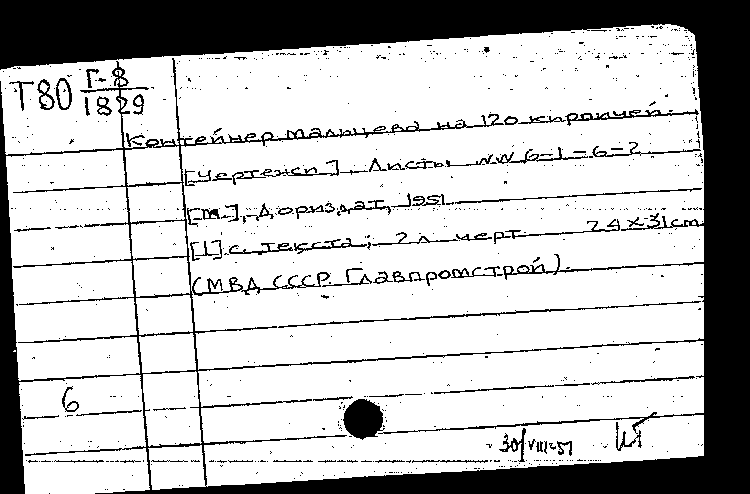 Т80 Г-8
1829
Контейнер Мальцева на 120 кирпичей.
[Чертежи]. Листы NN 6-1-6-2
[М.], Дориздат, 1951
[1] с. текста; 2 л. черт. 24×31см
(МВД СССР. Главпромстрой).
6
30/VIII-51